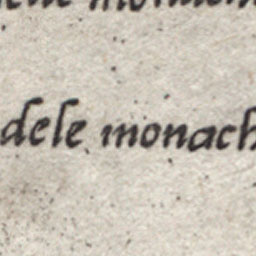 dele monach